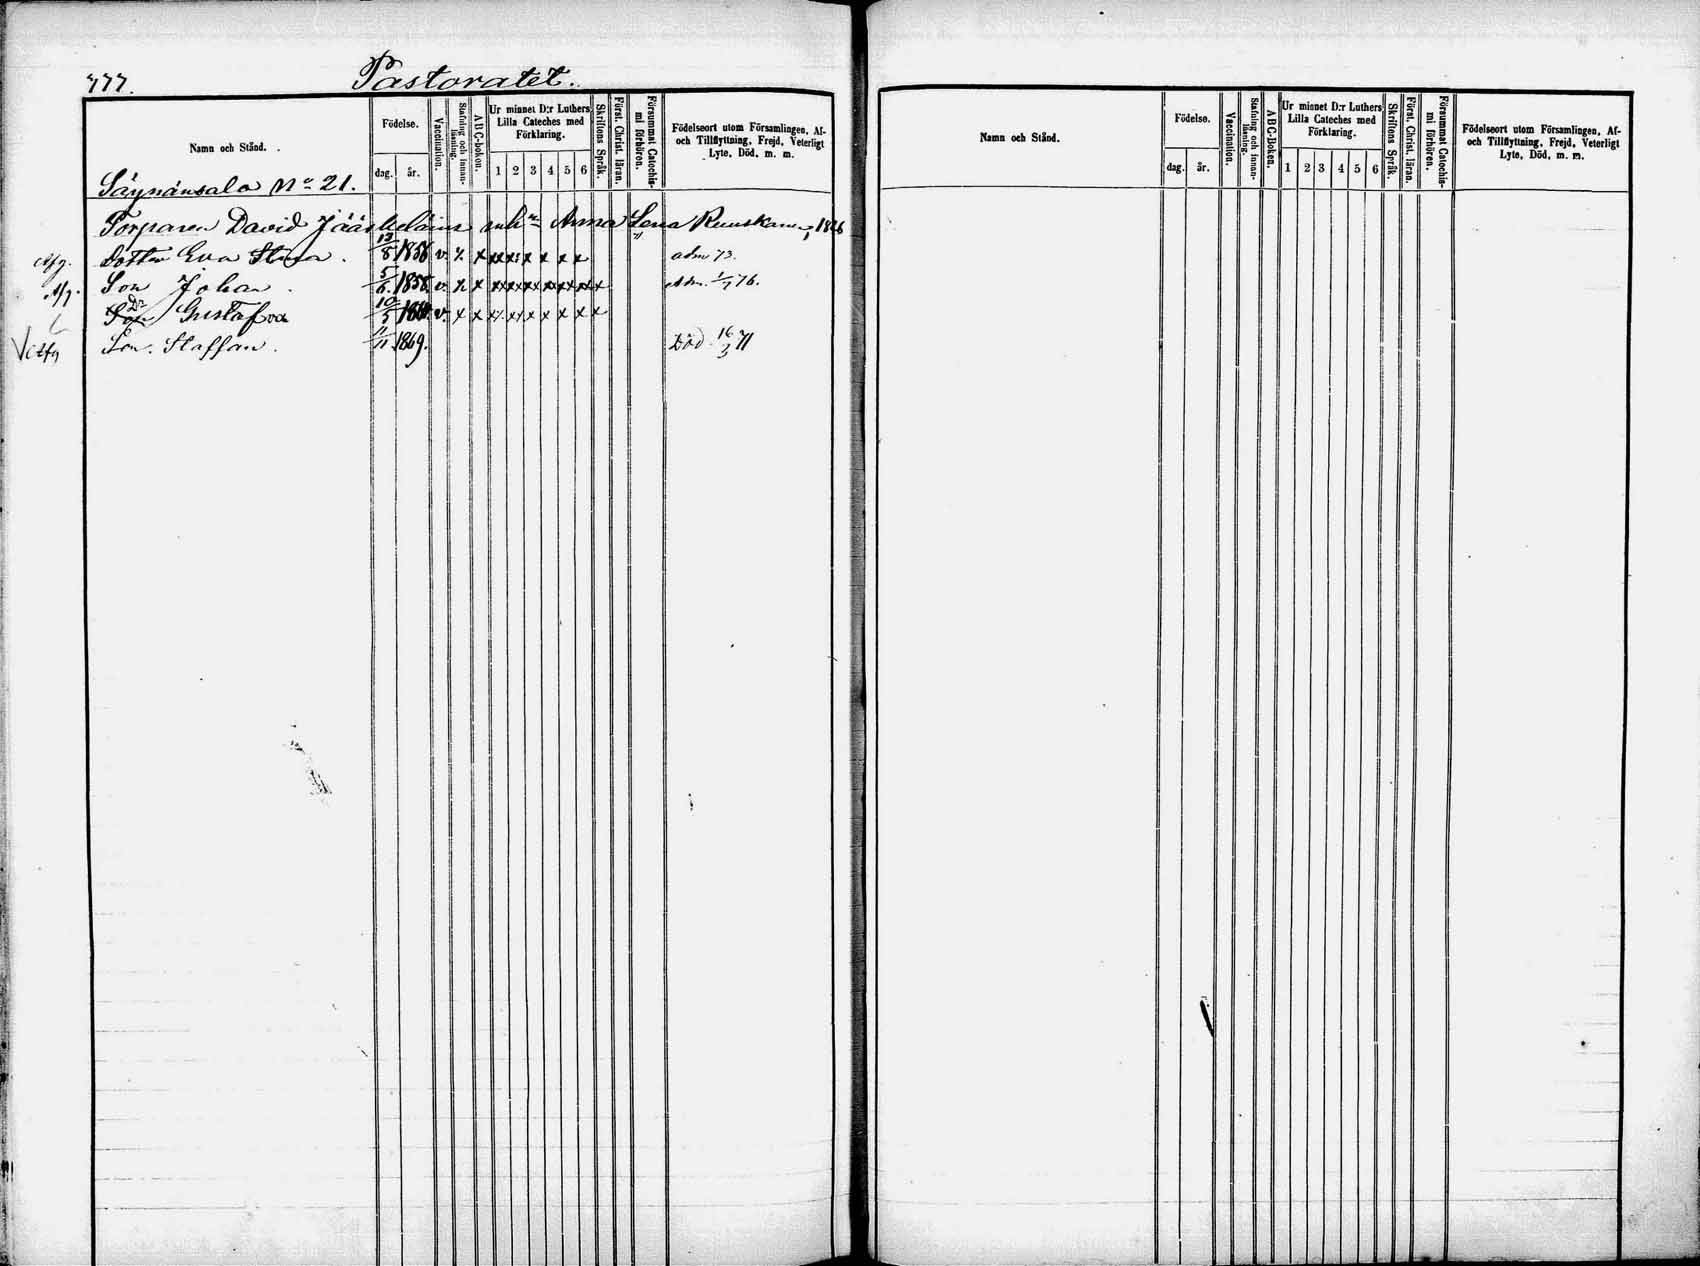 777. Pastoratet.
Namn och Stånd.
Födelse.
dag. år.
Vaccination.
Stafning och Innanläsning.
A B C-boken.
Ur minnet D:r Luthers Lilla Cateches med Förklaring.
1 2 3 4 5 6
Skriftens Språk.
Först. Christ. läran.
Försummat Catechismi förhören.
Födelseort utom Församlingen, Af- och Tillflyttning, Frejd, Veterligt Lyte, Död, m. m.
Säynänsalo No 21.
Torparen David Jääskeläins enka Anna Lena Ruuskanen, 1826
Afg. Dotter Eva Stina. 13/8 1856 v. x x x x x x x x adm 73.
Afg. Son Johan. 5/6 1858. v. x x xx xx xx xx xx xx x Adm. 1/7 76.
Son Dr Gustafva 10/5 186 v. x x xx xx x x x x x
Afg Son. Staffan. 11/11 1869. Död 16/3 71
Namn och Stånd.
Födelse.
dag. år.
Vaccination.
Stafning och Innanläsning.
A B C-Boken.
Ur minnet D:r Luthers Lilla Cateches med Förklaring.
1 2 3 4 5 6
Skriftens Språk.
Först. Christ. läran.
Försummat Catechismi förhören.
Födelseort utom Församlingen, Af- och Tillflyttning, Frejd, Veterligt Lyte, Död, m. m.